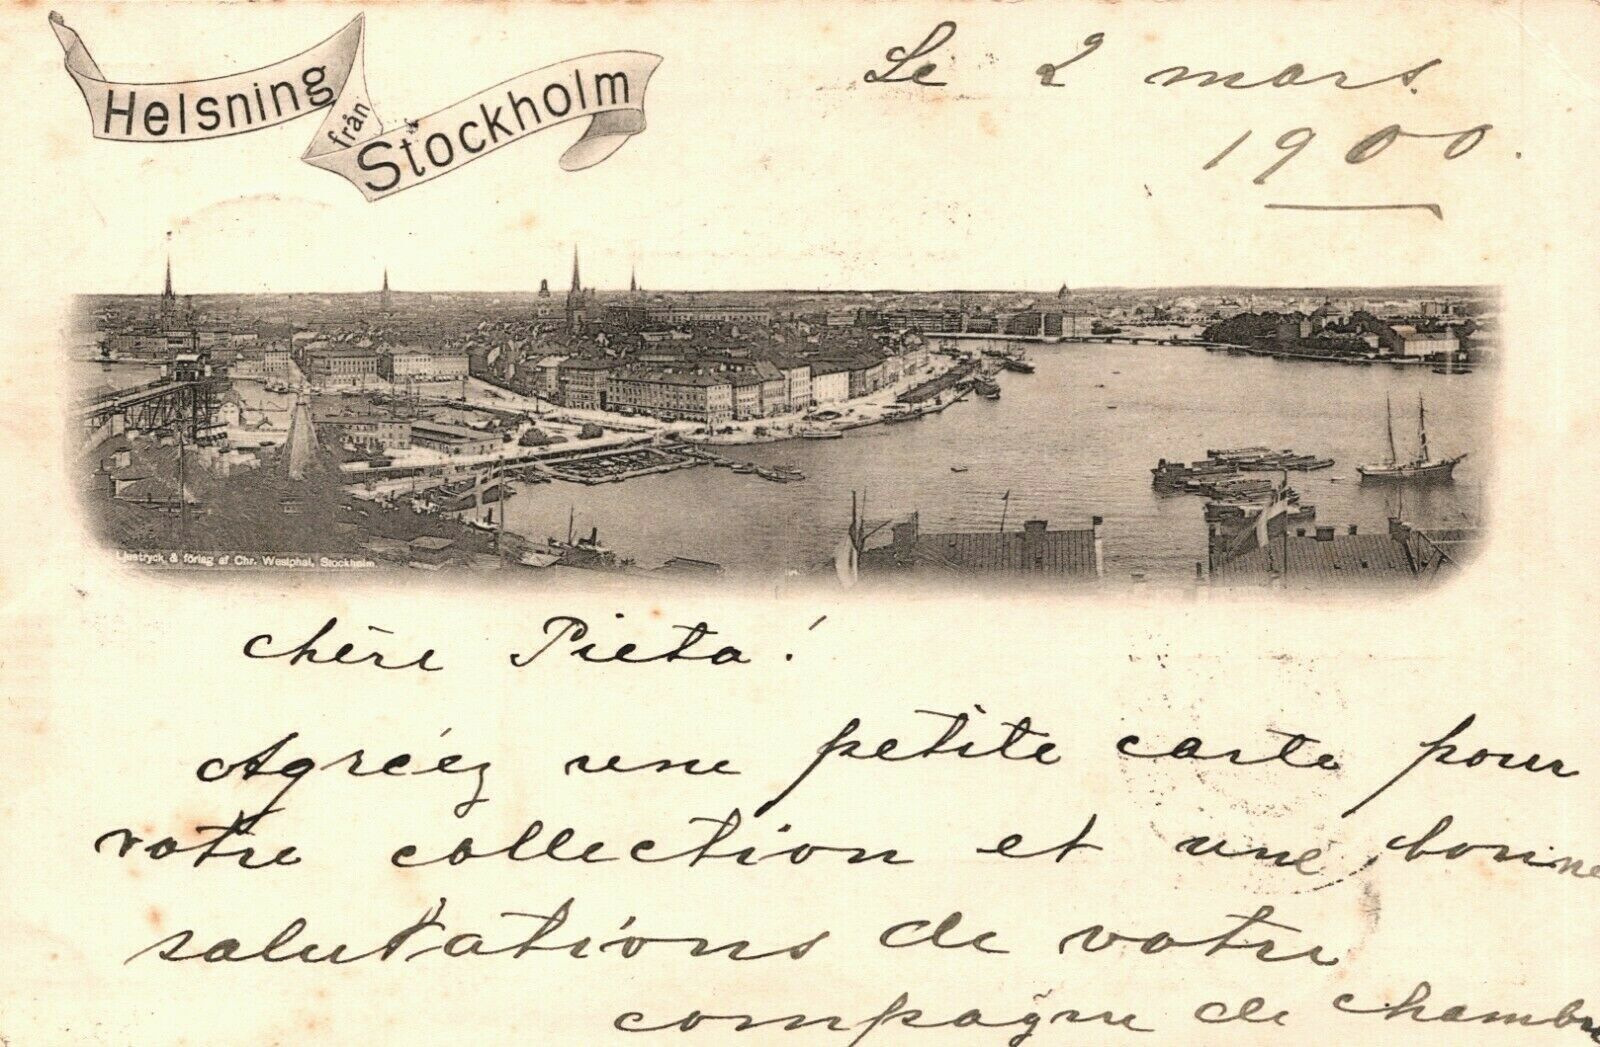 Helsning
från
Stockholm
Le 2 mars.
1900.
Ljustryck & förlag af Chr. Westphal, Stockholm
chère Pieta!
Agréez une petite carte pour
votre collection et une bonne
salutations de votre
compagne de chambre